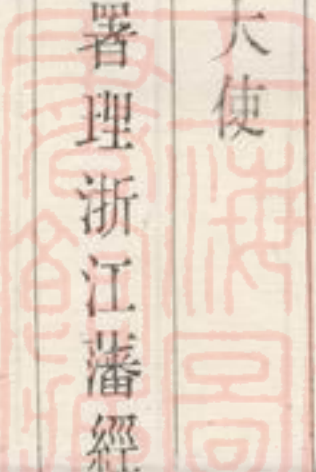 大使
署理浙江藩經